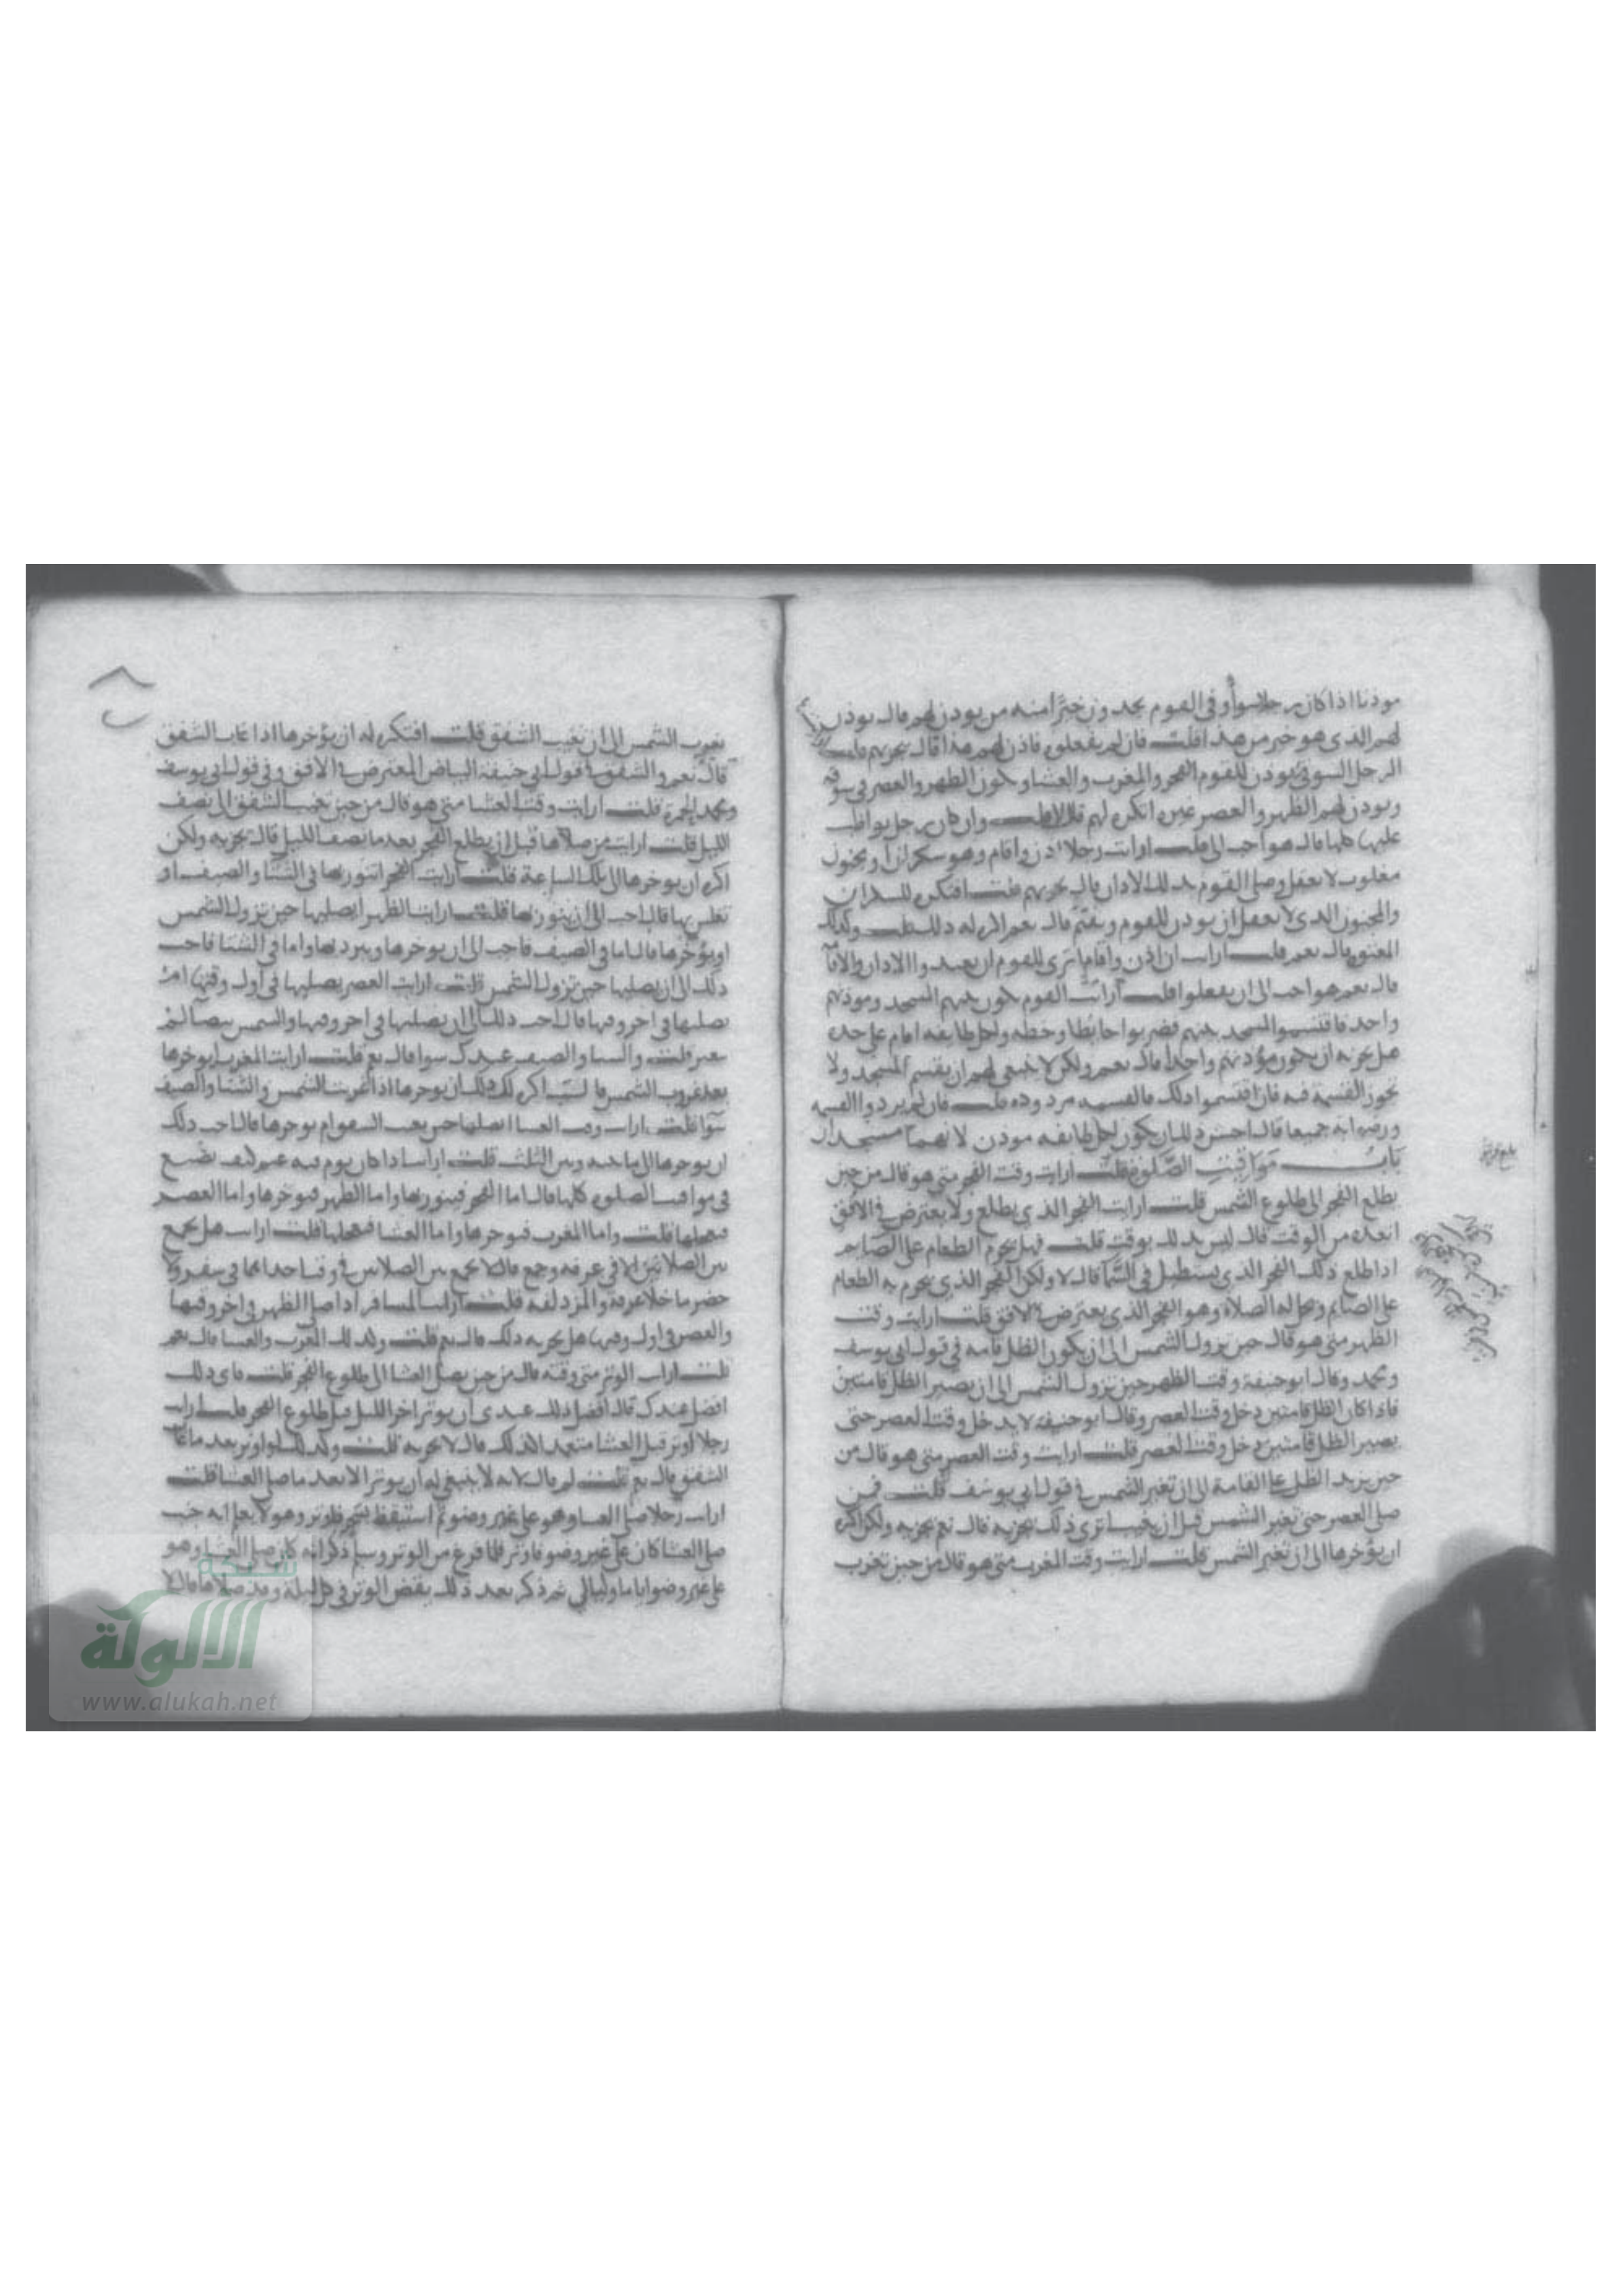 موذنا اذا كان رجلا سوأ وفي القوم يجدون خيرا منه من يوذن لهم قال يوذن
لهم الذي هو خير من هذا قلت فان لم يفعلوا فاذن لهم هذا قال يجزيهم قلت
الرجل السوقي يوذن للقوم الفجر والمغرب والعشا ويكون الظهر والعصر في سوقه
ويوذن لهم الظهر والعصر غيره اتكره لهم قال لا وان كان رجل يواظب
عليها كلها قال هو احب الي قلت ارايت رجلا اذن واقام وهو سكران او مجنون
مغلوب لا يعقل وصلى القوم بذلك الاذان قال يجزيهم قلت افتكره للسكران
والمجنون الذي لا يعقل ان يوذن للقوم ويقيم قال نعم اكره له ذلك قلت وكذلك
المعتوه قال نعم قلت ارايت ان اذن واقام اترى للقوم ان يعيدوا الاذان والاقامة
قال نعم هو احب الي ان يفعلوا قلت ارايت القوم يكون بينهم المسجد وموذنهم
واحد فاقتسموا المسجد بينهم فضربوا حائطا وسطه ولكل طائفة امام على حدة
هل يجزيه ان يكون مؤذنهم واحدا قال نعم ولكن لا ينبغي لهم ان يقسم المسجد ولا
يجوز القسمة فيه فان اقتسموا ذلك فالقسمة مردودة قلت فان لم يردوا القسمة
ورضوا به جميعا قال احسن ذلك ان يكون لكل طائفة موذن لانهما مسجدان
باب مواقيت الصلوة قلت ارايت وقت الفجر متى هو قال من حين
يطلع الفجر الى طلوع الشمس قلت ارايت الفجر الذي يطلع ولا يعترض في الافق
اتعده من الوقت قال ليس ذلك بوقت قلت فهل يحرم الطعام على الصايم
اذا طلع ذلك الفجر الذي يستطيل في السما قال لا ولكن الفجر الذي يحرم به الطعام
على الصايم وتحل له الصلاة وهو الفجر الذي يعترض في الافق قلت ارايت وقت
الظهر متى هو قال حين يزول الشمس الى ان يكون الظل قامة في قول ابي يوسف
ومحمد وقال ابو حنيفة وقت الظهر حين تزول الشمس الى ان يصير الظل قامتين
فاذا كان الظل قامتين دخل وقت العصر وقال ابو حنيفة لا يدخل وقت العصر حتى
يصير الظل قامتين دخل وقت العصر قلت ارايت وقت العصر متى هو قال من
حين يزيد الظل على القامة الى ان تغير الشمس في قول ابي يوسف قلت فمن
صلى العصر حين تغير الشمس قبل ان يغيب اترى ذلك يجزيه قال نعم يجزيه ولكن اكره
ان يؤخرها الى ان تغير الشمس قلت ارايت وقت المغرب متى هو قال من حين تغرب
تغرب الشمس الى ان تغيب الشفق قلت افتكره له ان يؤخرها اذا غاب الشفق
قال نعم والشفق في قول ابي حنيفة البياض المعترض في الافق وفي قول ابي يوسف
ومحمد الحمرة قلت ارايت وقت العشا متى هو قال من حين تغيب الشفق الى نصف
الليل قلت ارايت من صلاها قبل ان يطلع الفجر بعد ما نصف الليل قال تجزيه ولكن
اكره ان يوخرها الى تلك الساعة قلت ارايت الفجر اتنور بها في الشتا والصيف او
تغلس بها قال احب الي ان ينور بها قلت ارايت الظهر ايصليها حين تزول الشمس
او يؤخرها قال اما في الصيف فاحب الي ان يوخرها ويبرد بها واما في الشتا فاحب
ذلك الي ان يصليها حين تزول الشمس قلت ارايت العصر يصليها في اول وقتها ام
يصليها في اخر وقتها قال احب ذلك الي ان يصليها في اخر وقتها والشمس بيضا لم
تتغير قلت والشتا والصيف عندك سوا قال نعم قلت ارايت المغرب ايوخرها
بعد غروب الشمس اكره له ذلك ان يوخرها اذا غربت الشمس والشتا والصيف
سوا قلت ارايت وقت العشا ايصليها حين يغيب الشفق ام يوخرها قال احب ذلك
ان يوخرها الى ما بينه وبين الثلث قلت ارايت اذا كان يوم فيه غيم كيف تصنع
في مواقيت الصلوة كلها قال اما الفجر فينور بها واما الظهر فيوخرها واما العصر
فيعجلها قلت واما المغرب فيوخرها واما العشا فيعجلها قلت ارايت هل يجمع
بين الصلاتين الا في عرفة وجمع قال لا يجمع بين الصلاتين في وقت احداهما في سفر ولا
حضر ما خلا عرفة والمزدلفة قلت ارايت المسافر اذا صلى الظهر في اخر وقتها
والعصر في اول وقتها هل يجزيه ذلك قال نعم قلت وكذلك المغرب والعشا قال نعم
قلت ارايت الوتر متى وقته قال من حين يصلي العشا الى طلوع الفجر قلت فاي ذلك
افضل عندك قال افضل ذلك عندي ان يوتر اخر الليل قبل طلوع الفجر قلت ارايت
رجلا اوتر قبل العشا متعمدا لذلك قال لا يجزيه قلت وكذلك لو اوتر بعد ما غاب
الشفق قال نعم قلت لم قال لانه لا ينبغي له ان يوتر الا بعد ما صلى العشا قلت
ارايت رجلا صلى العشا وهو على غير وضو ثم استيقظ فاوتر وهو لا يعلم انه حيث
صلى العشا كان على غير وضو فاوتر فلما فرغ من الوتر وسلم ذكر انه كان صلى العشا وهو
على غير وضو اياما وليالي ثم ذكر بعد ذلك يقض الوتر في كل ليلة وقد صلاها قال لا
شبكة
الألوكة
www.alukah.net